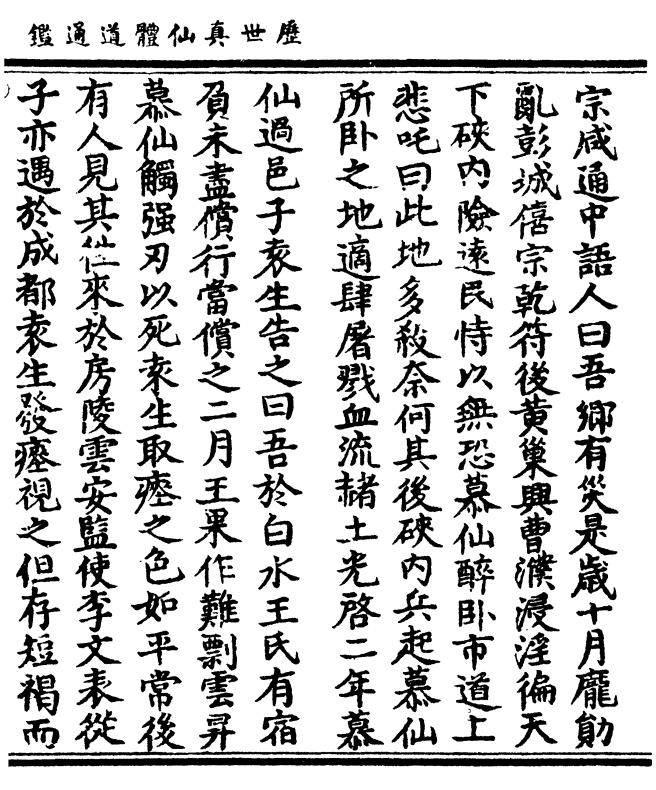 歷世真仙體道通鑑
宗咸通中語人曰吾鄉有災是歲十月龐勛
亂彭城僖宗乾符後黃巢興曹濮浸淫徧天
下硤內險遠民恃以無恐慕仙醉臥市道上
悲吒曰此地多殺奈何其後硤內兵起慕仙
所臥之地適肆屠戮血流赭土光啓二年慕
仙過邑子袁生告之曰吾於白水王氏有宿
負未盡償行當償之二月王果作難剽雲昇
慕仙觸强刃以死袁生取瘞之色如平常後
有人見其往來於房陵雲安監使李文表從
子亦遇於成都袁生發瘞視之但存短褐而